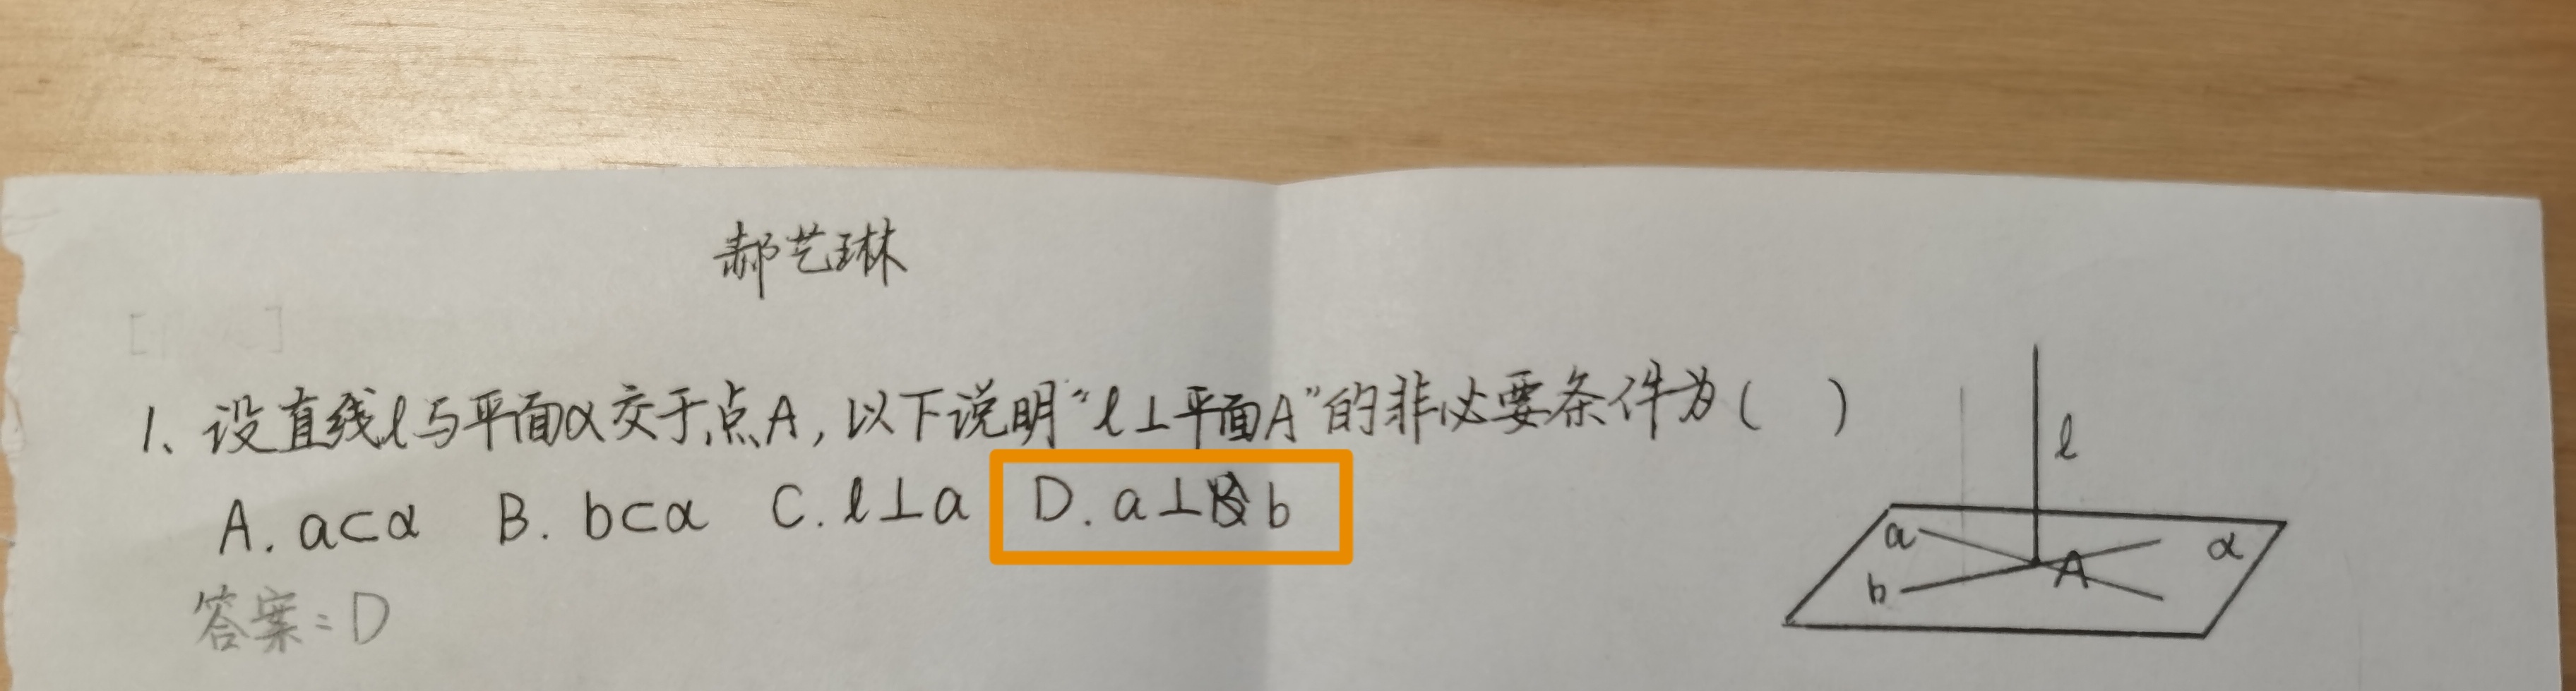 郝艺琳
1、设直线l与平面α交于点A，以下说明“l⊥平面A”的非必要条件为（ ）
A. a⊂α B. b⊂α C. l⊥a D. a⊥b
答案：D
l
a
α
b
A